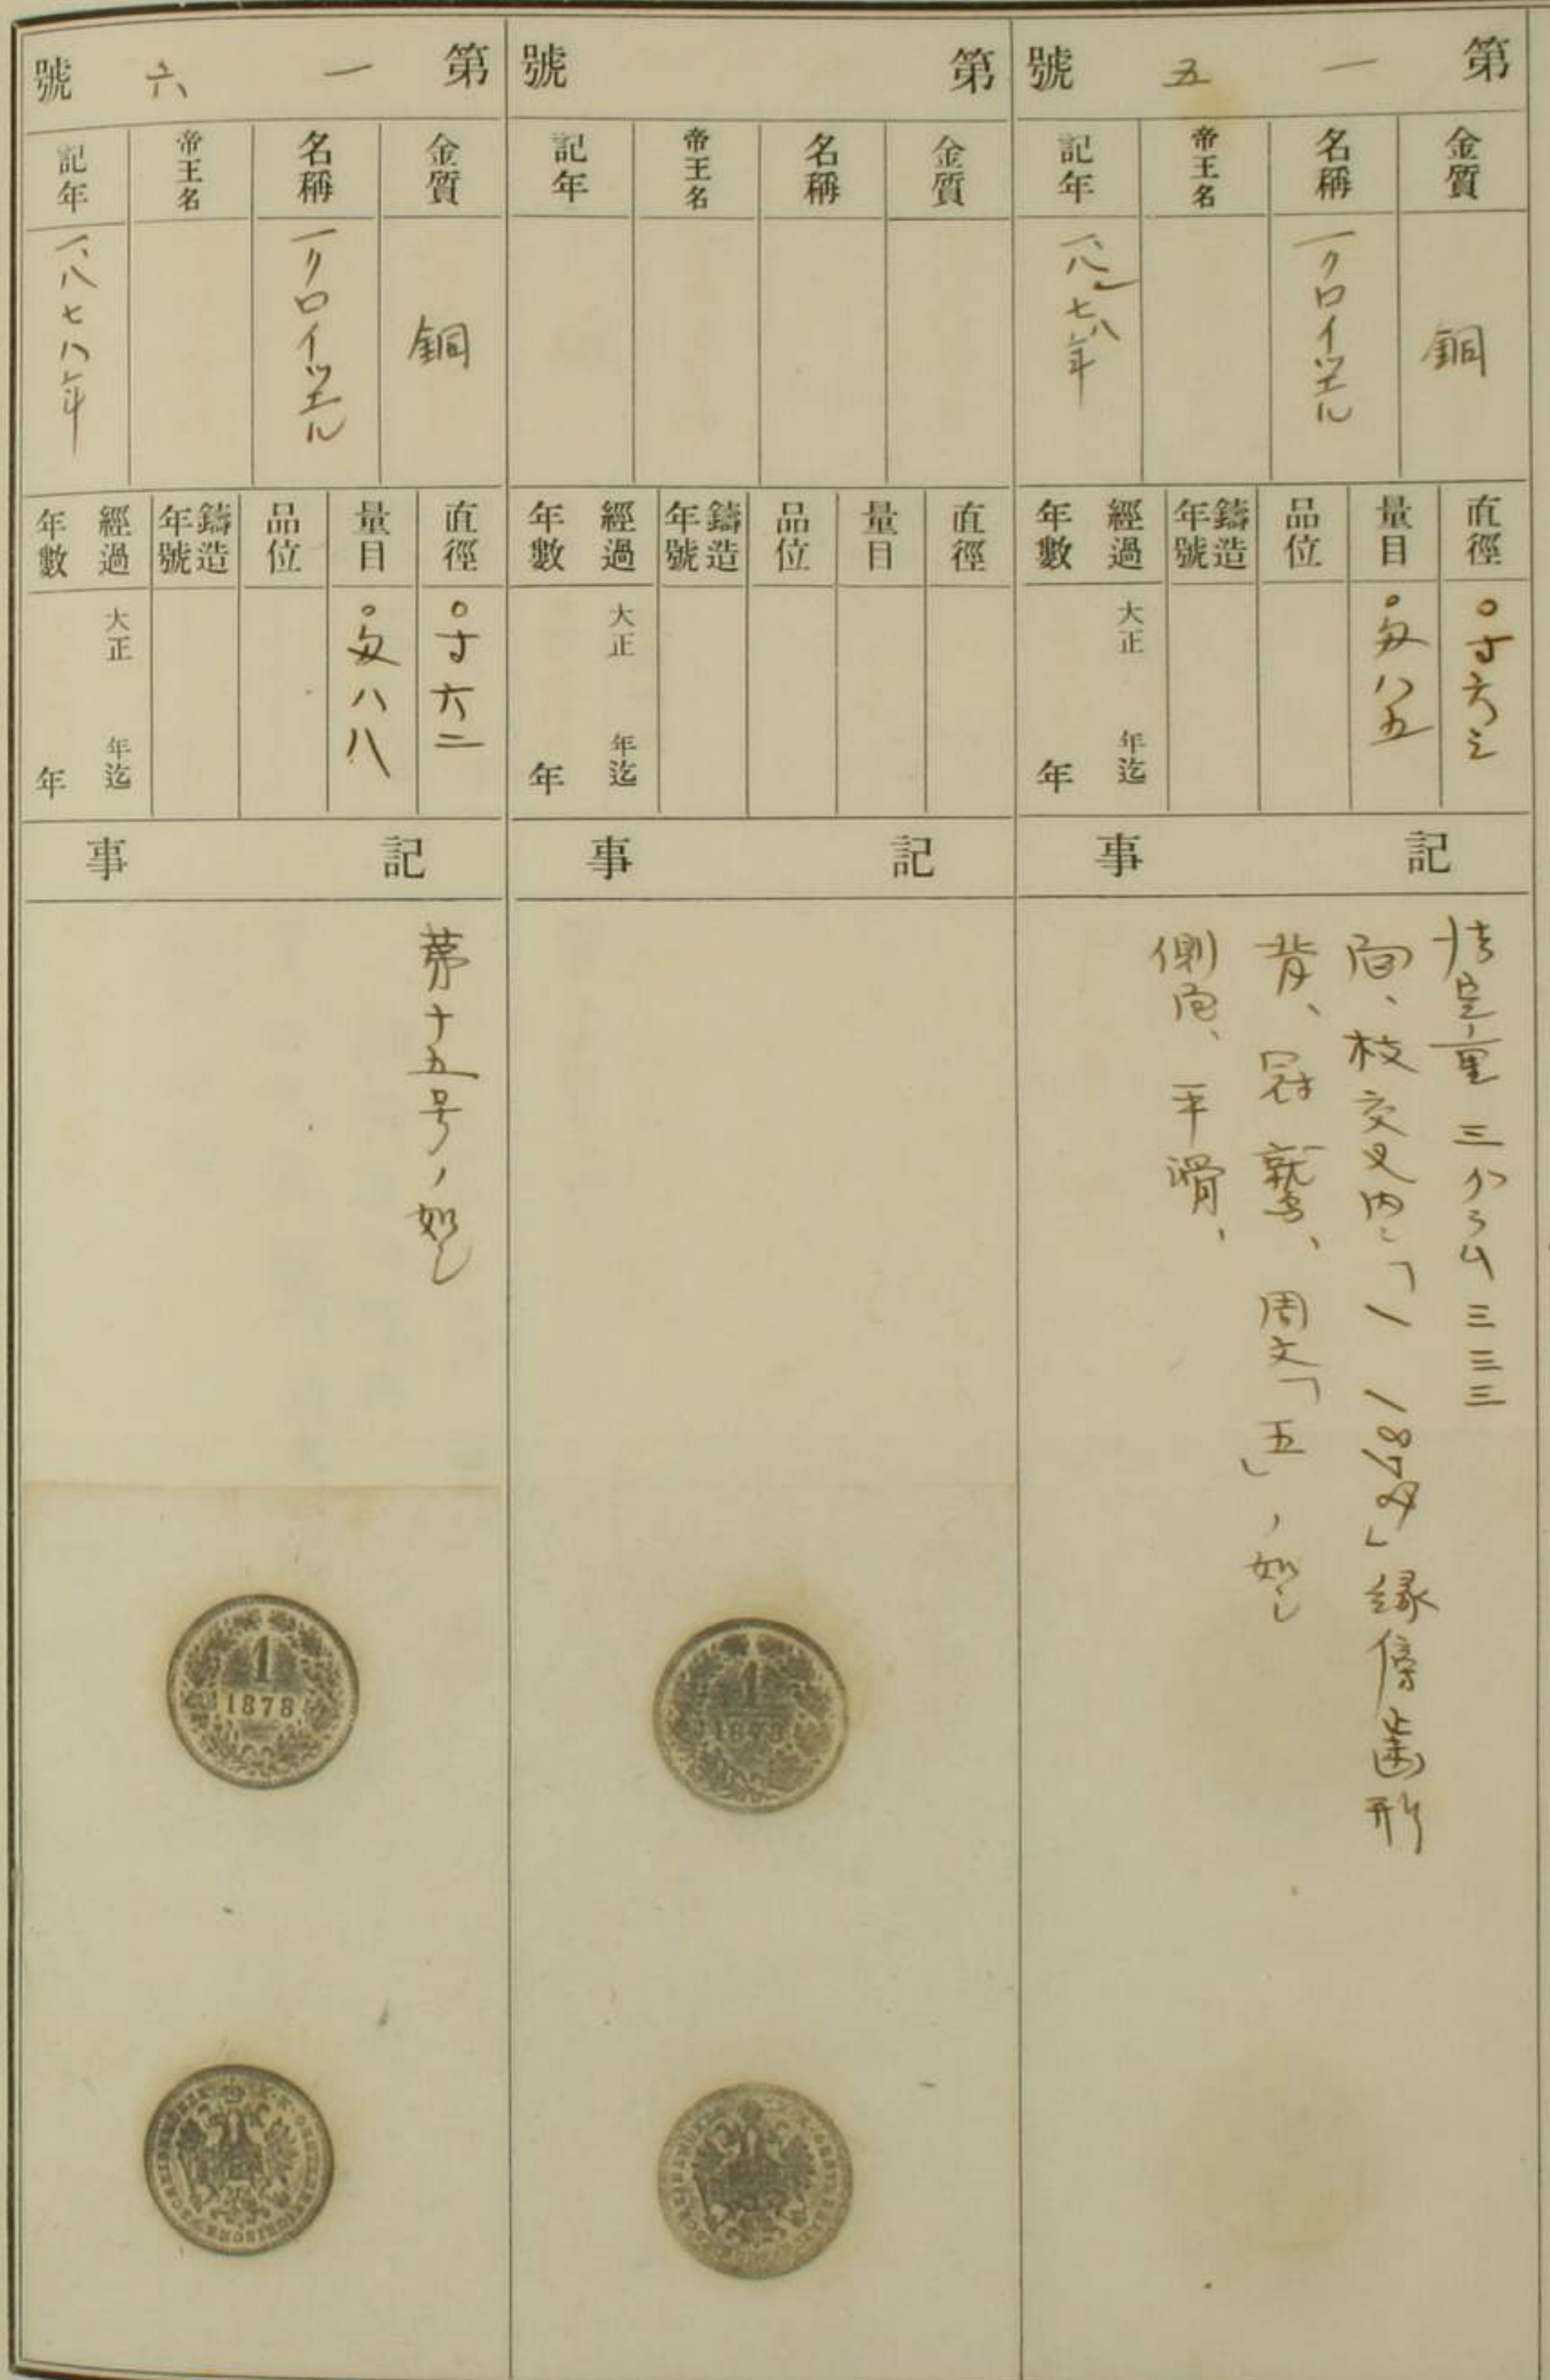 第一五號
金質
銅
名稱
一クロイツエル
帝王名
記年
一八七八年
直徑
〇寸六二
量目
〇匁八五
品位
鑄造年號
經過年數
大正 年迄
年
記事
法定ノ量 三グラム三三三
面、枝交叉内ニ「1 1878」縁傍歯形
背、冠鷲、周文「五」ノ如シ
側面、平滑、
第 號
金質
名稱
帝王名
記年
直徑
量目
品位
鑄造年號
經過年數
大正 年迄
年
記事
1
1878
第一六號
金質
銅
名稱
一クロイツエル
帝王名
記年
一、八七八年
直徑
〇寸六二
量目
〇匁八八
品位
鑄造年號
經過年數
大正 年迄
年
記事
第十五号ノ如シ
1
1878